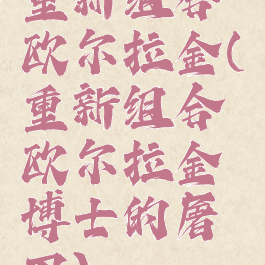 重新组合
欧尔拉金(
重新组合
欧尔拉金
博士的屠